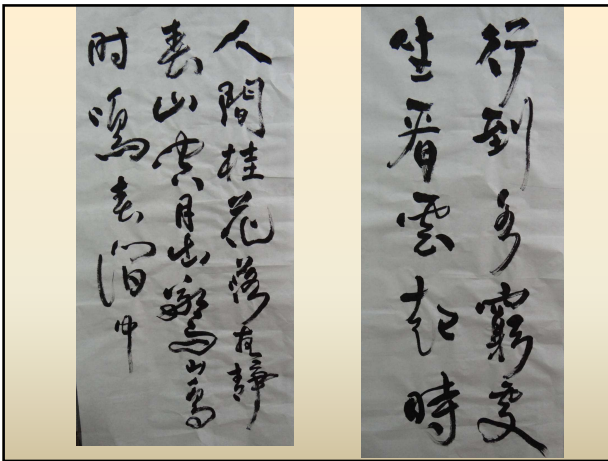 行到水窮處
坐看雲起時
人間桂花落夜靜
春山空月出驚山鳥
时鳴春澗中